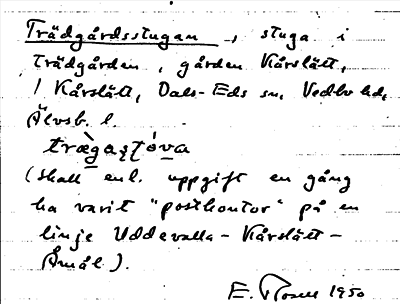 Trädgårdsstugan -, stuga i
trädgården, gården Kårslätt,
/ Kårslätt, Dals-Eds sn, Vedbo hd,
Älvsb. l.
trægaṣṭóva
(skall enl. uppgift en gång
ha varit "postkontor" på en
linje Uddevalla - Kårslätt -
Åmål).
E. 1950